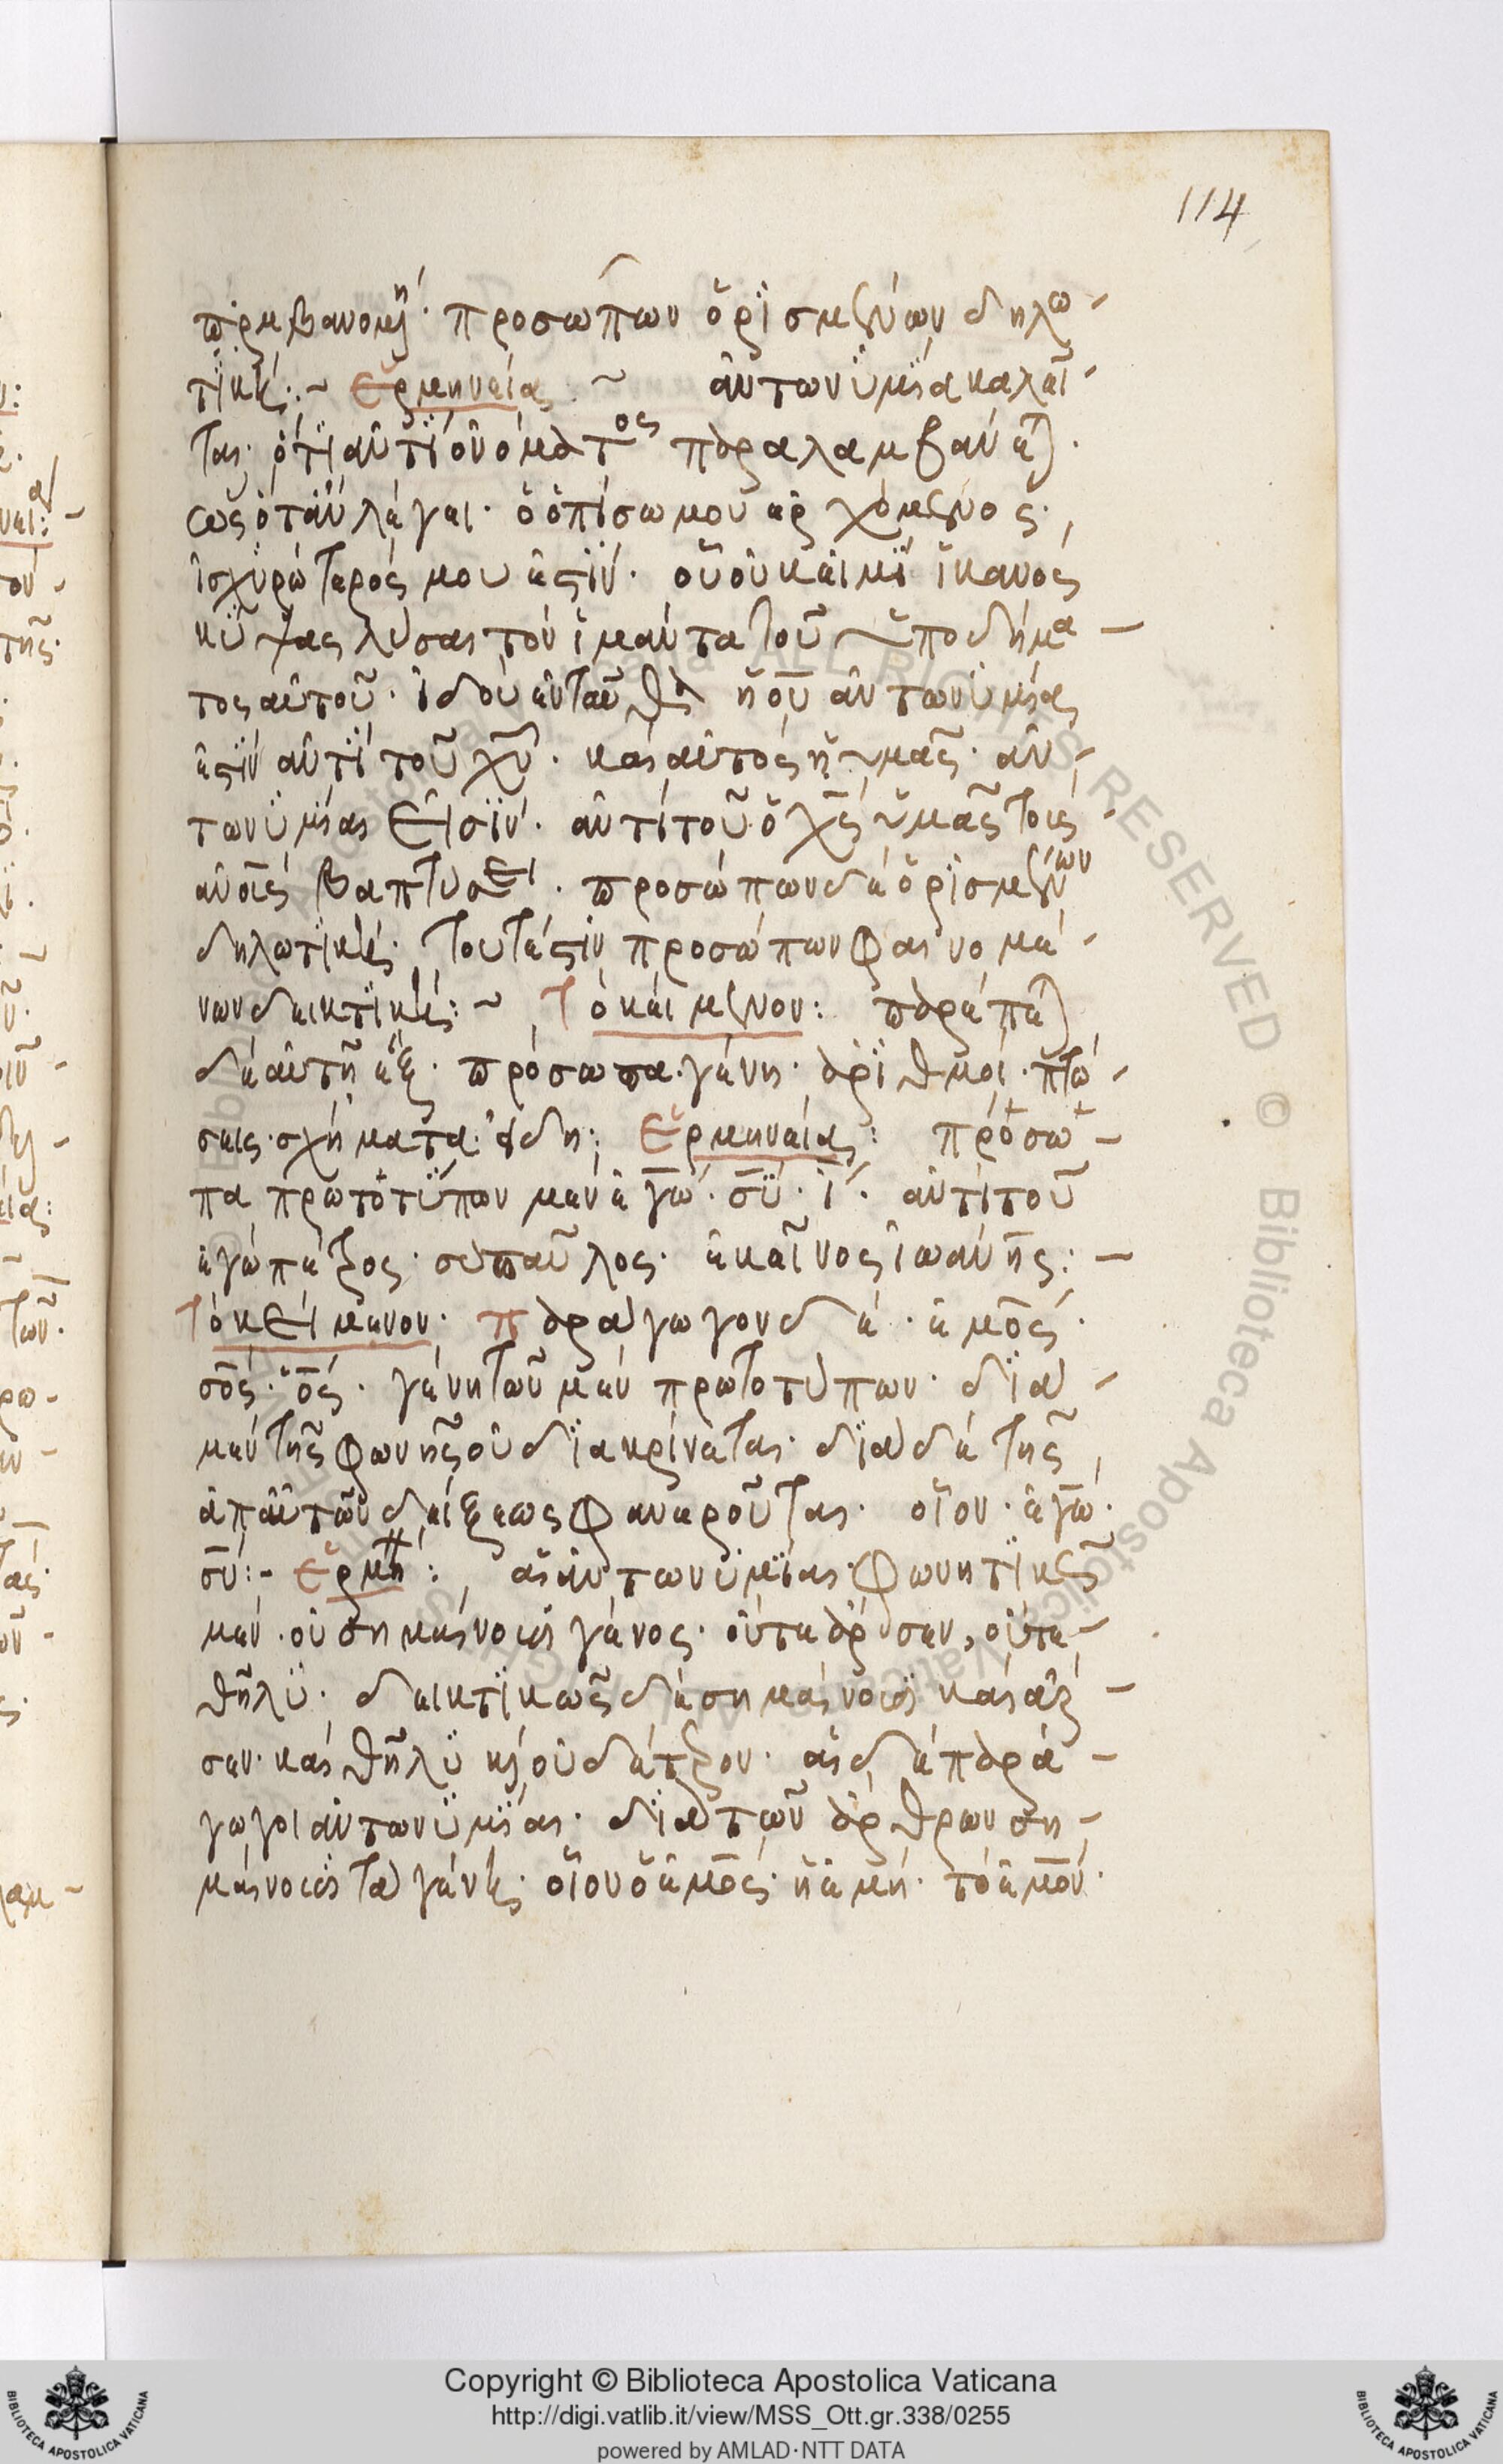 114
παρεμβανομένη· προσώπων ὁρισμένων δηλω-
τική:~ Ἑρμηνεία ~ ἀντωνυμία καλεῖ-
ται· ὅτι ἀντὶ ὀνόματος παραλαμβάνεται.
ὡς ὅταν λέγει· ὁ ὀπίσω μου ἐρχόμενος·
ἰσχυρότερός μου ἐστίν· οὗ οὐκ εἰμὶ ἱκανὸς
κύψας λῦσαι τὸν ἱμάντα τοῦ ὑποδήμα-
τος αὐτοῦ· ἰδοὺ ἐνταῦθα ἡ οὗ ἀντωνυμία
ἐστὶν ἀντὶ τοῦ χυ· καὶ αὐτὸς ἡ ὑμᾶς· ἀν-
τωνυμίαι εἰσίν· ἀντὶ τοῦ ὁ χς ὑμᾶς τοὺς
ανους βαπτύσει· προσώπων δὲ ὁρισμένων
δηλωτική· τουτέστιν προσώπων φαινομέ-
νων δεικτική:~ Τὸ κείμενον: παρέπεται
δὲ αὐτῇ ἕξ· πρόσωπα· γένη· ἀριθμοί· πτώ-
σεις· σχήματα· εἴδη: Ἑρμηνεία: πρόσω-
πα πρωτοτύπων μὲν ἐγώ· σύ· ἵ· ἀντὶ τοῦ
ἐγὼ πέτρος· σὺ παῦλος· ἐκεῖνος ἰωάνης:-
Τὸ κείμενον· παραγώγον δὲ· ἐμός·
σός· ὅς· γένη τῶν μὲν πρωτοτύπων· διὰ-
μὲν τῆς φωνῆς οὐ διακρίνεται· διὰ δὲ τῆς
ἀπ' αὐτῶν δείξεως φανεροῦται· οἷον· ἐγώ·
σύ:- Ἑρμη: αἱ ἀντωνυμίαι φωνητικῶς
μὲν οὐ σημαίνουσι γένος· οὔτε ἄρσεν, οὔτε-
θῆλυ· δεικτικῶς δὲ σημαίνουσι καὶ ἄρ-
σεν· καὶ θῆλυ καὶ οὐδέτερον· αἱ δὲ παρά-
γωγοι ἀντωνυμίαι· διὰ τῶν ἄρθρων ση-
μαίνουσι τὰ γένη· οἷον ὁ ἐμός· ἡ ἐμή· τὸ ἐμόν·
Copyright © Biblioteca Apostolica Vaticana
http://digi.vatlib.it/view/MSS_Ott.gr.338/0255
powered by AMLAD·NTT DATA